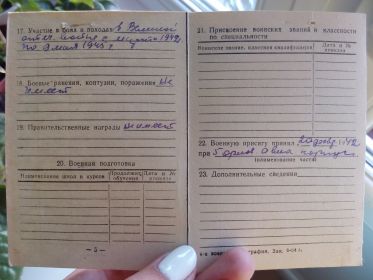 17. Участие в боях и походах в Великой
отеч. войне с 1942
по 9 мая 1945 г.
18. Боевые ранения, контузии, поражения не
имеет
19. Правительственные награды не имеет
20. Военная подготовка
Наименование школ и курсов
Продолжит. обучения
Дата и № приказа
— 5 —
21. Присвоение воинских званий и классности
по специальности
Воинское звание, классная квалификация
Дата и № приказа
22. Военную присягу принял 1942
при
(наименование части)
23. Дополнительные сведения